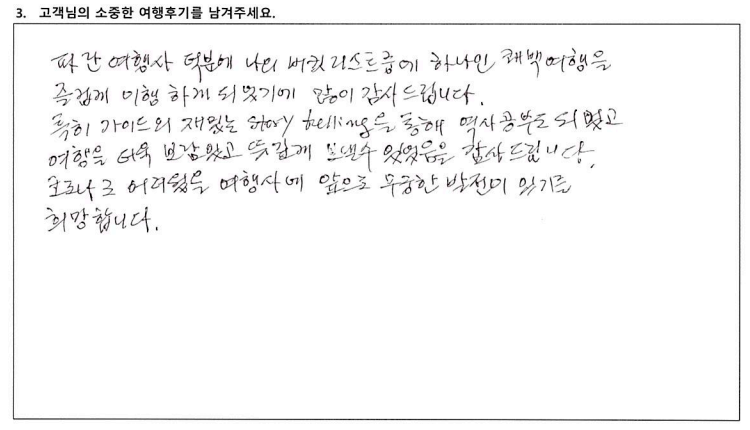 3. 고객님의 소중한 여행후기를 남겨주세요.
파란 여행사 덕분에 나의 버킷리스트중에 하나인 퀘백여행을
즐겁게 이행 하게 되었기에 많이 감사드립니다.
특히 가이드의 재밌는 story telling을 통해 역사공부도 되었고
여행을 더욱 보람있고 뜻깊게 보낼수 있었음을 감사드립니다.
코로나로 어려웠을 여행사에 앞으로 무궁한 발전이 있기를
희망합니다.